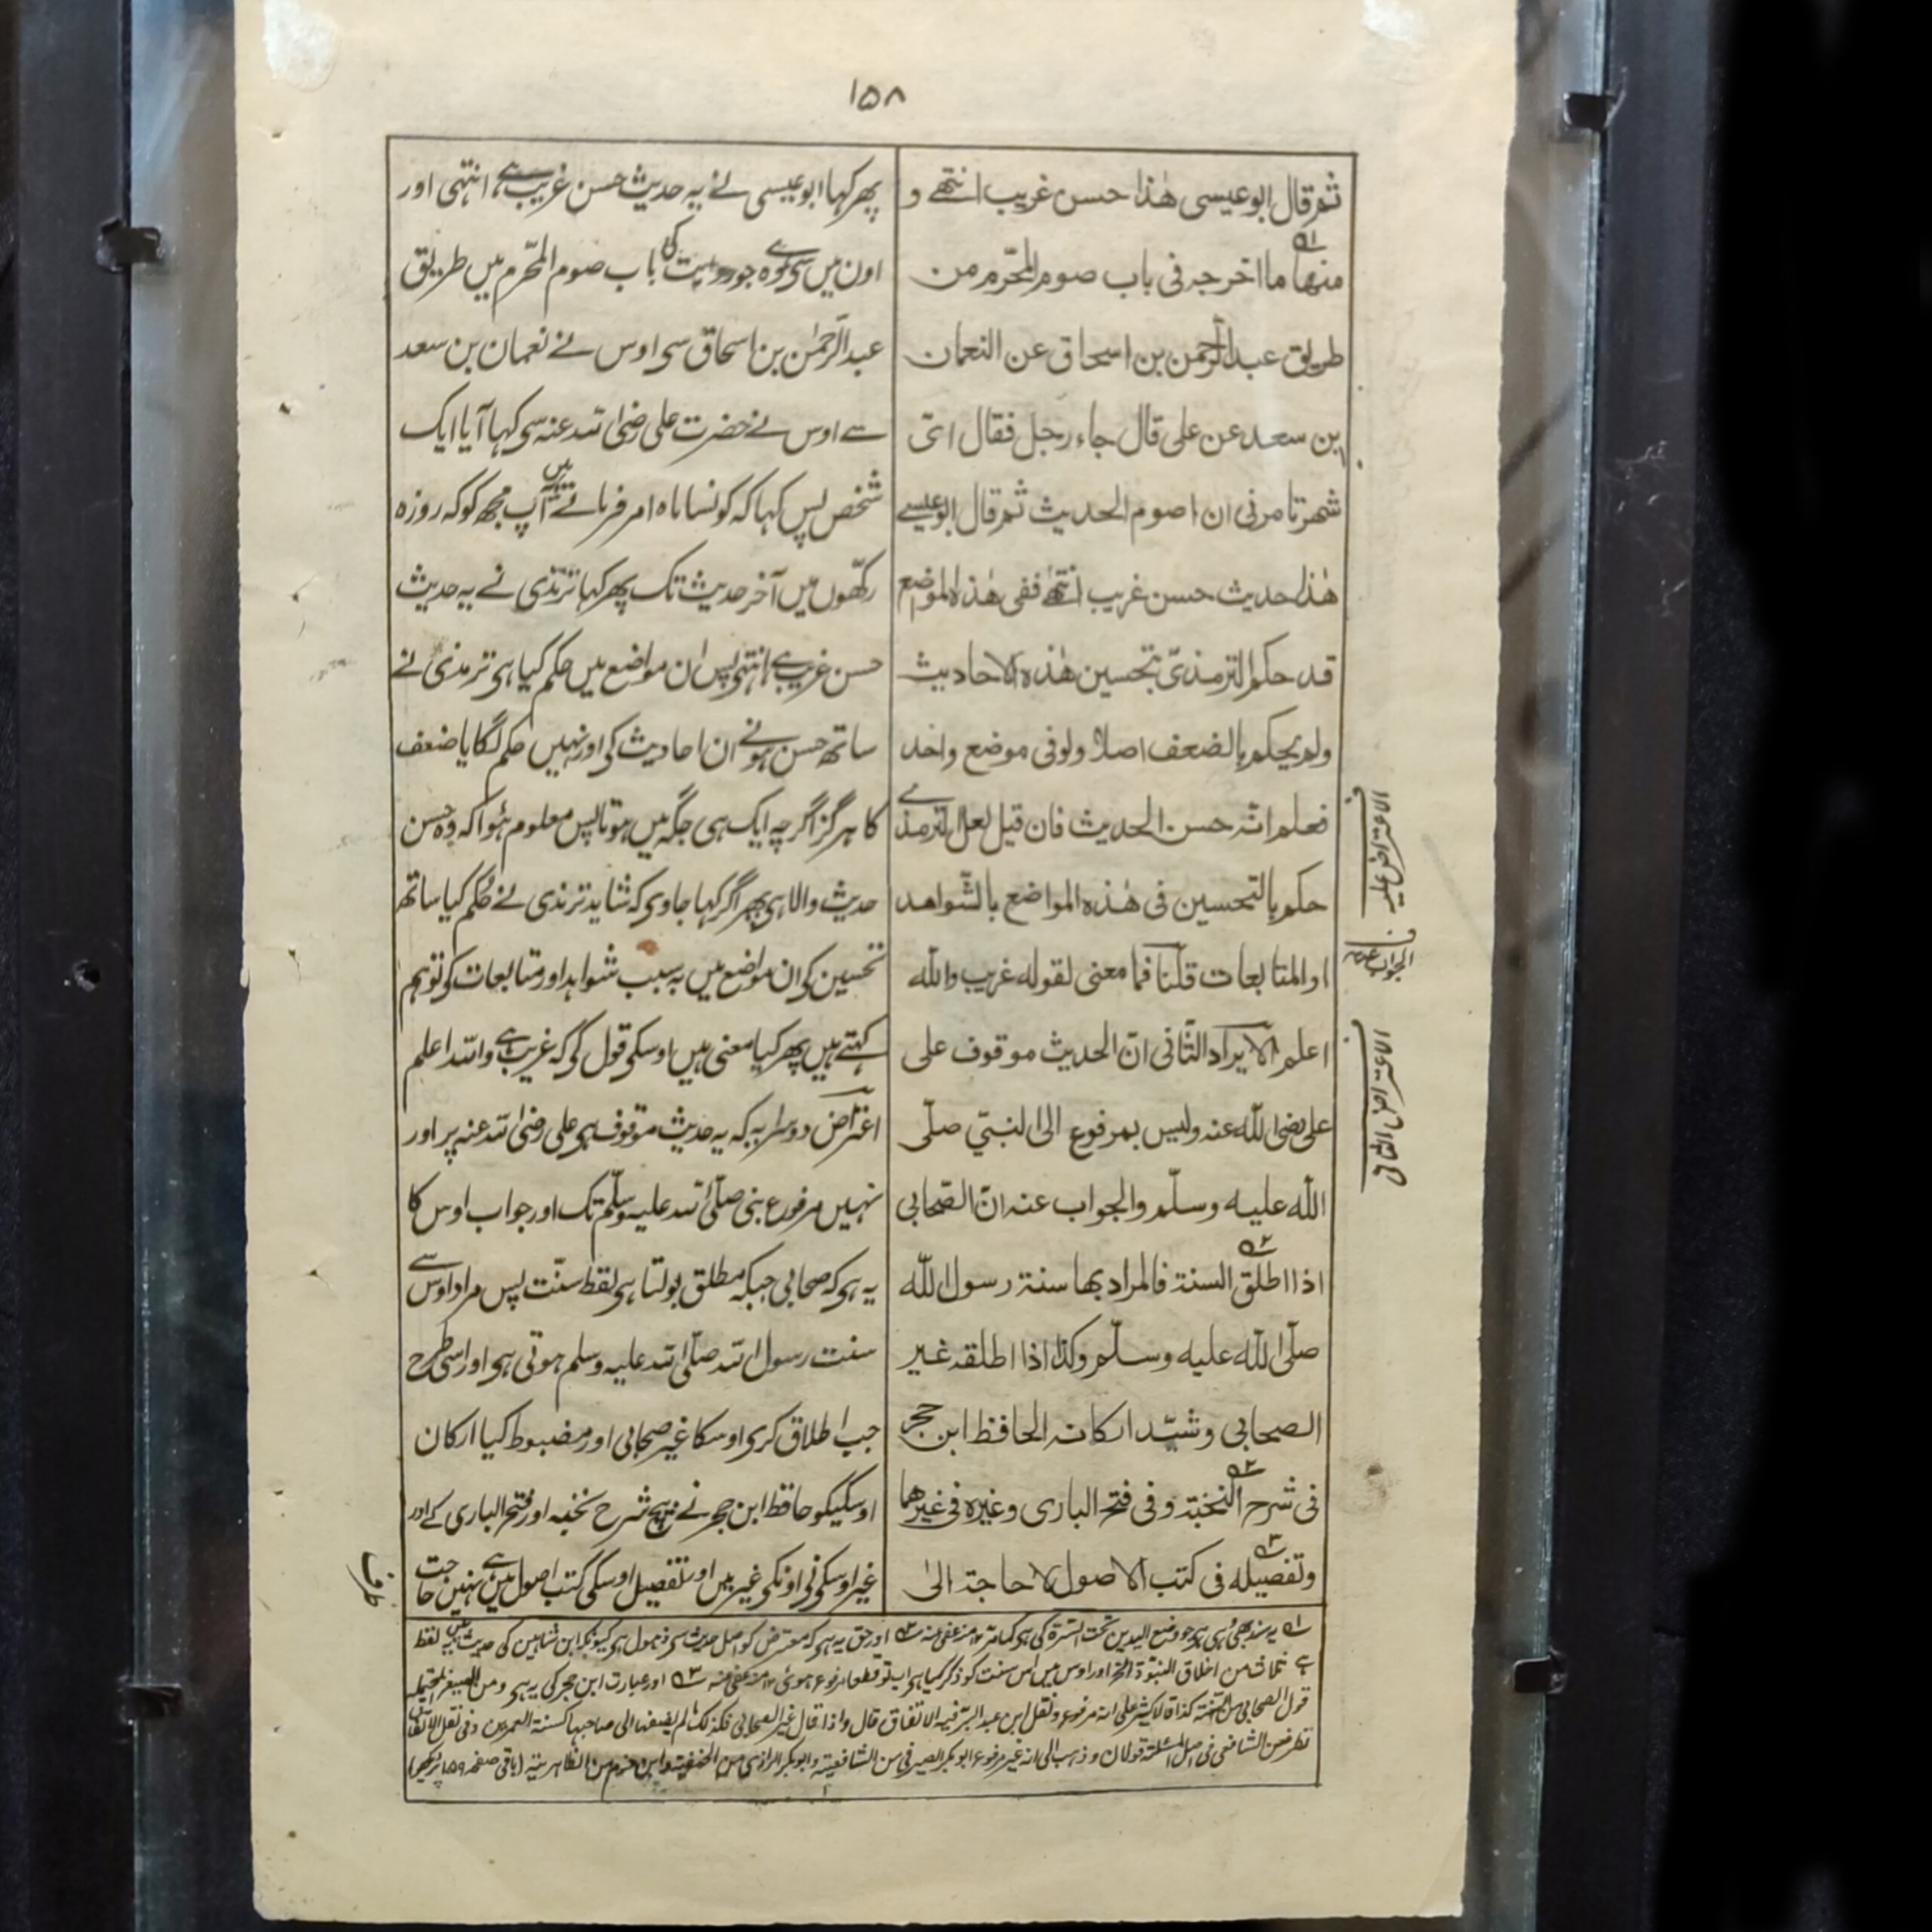 ۱۵۸
ثم قال ابو عیسی هٰذا حسن غریب انتهے و
منها ما اخرجه فی باب صوم المحرّم من
طریق عبد الرّحمن بن اسحاق عن النعمان
بن سعد عن علی قال جاء رجل فقال ایّ
شهر تامرنی ان اصوم الحدیث ثم قال ابو عیسے
هٰذا حدیث حسن غریب انتهٰے ففی هٰذه المواضع
قد حکم الترمذیّ بتحسین هٰذه الاحادیث
ولم یحکم بالضعف اصلا ولو فی موضع واحد
فعلم انّه حسن الحدیث فان قیل لعل الترمذے
حکم بالتحسین فی هٰذه المواضع بالشّواهد
او المتابعات قلنا فما معنی لقوله غریب واللّٰه
اعلم الایراد الثّانی انّ الحدیث موقوف علی
علی رضی اللّٰه عنه ولیس بمرفوع الی النبیّ صلّی
اللّٰه علیه وسلّم والجواب عنه انّ الصّحابی
اذا اطلق السنة فالمراد بها سنة رسول اللّٰه
صلّی اللّٰه علیه وسلّم وکذا اذا اطلقه غیر
الصحابی وشیّد ارکانه الحافظ ابن حجر
فی شرح النخبة وفی فتح الباری وغیره فی غیرهما
وتفصیله فی کتب الاصول لا حاجة الیٰ
پھر کہا ابو عیسی نے یہ حدیث حسن غریب ہے انتہی اور
اون میں سی ہے وہ جو روایت کا باب صوم المحرّم میں طریق
عبد الرّحمٰن بن اسحاق سی اوس نے نعمان بن سعد
سے اوس نے حضرت علی رضی اللہ عنہ سی کہا آیا ایک
شخص پس کہا کہ کونسا ماہ امر فرماتے ہیں آپ مجھ کو کہ روزہ
رکھّوں میں آخر حدیث تک پھر کہا ترمذی نے یہ حدیث
حسن غریب ہے انتہی پس ان مواضع میں حکم کیا ہی ترمذی نے
ساتھ حسن ہونے ان احادیث کی اور نہیں حکم لگایا ضعف
کا ہرگز اگرچہ ایک ہی جگہ میں ہوتا پس معلوم ہُوا کہ وہ حسن
حدیث والا ہی پھر اگر کہا جاوی کہ شاید ترمذی نے حُکم کیا ساتھ
تحسین کی ان مواضع میں بہ سبب شواہد اور متابعات کی تو ہم
کہتے ہیں پھر کیا معنی ہیں اوسکی قول کی کہ غریب ہے واللہ اعلم
اعتراض دوسرا یہ کہ یہ حدیث موقوف ہی علی رضی اللہ عنہ پر اور
نہیں مرفوع نبی صلّی اللہ علیہ وسلّم تک اور جواب اوس کا
یہ ہی کہ صحابی جبکہ مطلق بولتا ہی لفظ سنّت پس مراد اوس سے
سنت رسول اللہ صلّی اللہ علیہ وسلم ہوتی ہی اور اسی طرح
جب اطلاق کری اوسکا غیر صحابی اور مضبوط کیا ارکان
اوسکیکو حافظ ابن حجر نے بیچ شرح نخبہ اور فتح الباری کے اور
غیر اوسکی نی اونکی غیر میں اور تفصیل اوسکی کتب اصول میں ہے نہیں حاجت
الاعتراض علیہ
الجواب عنہ
الاعتراض الثانی
طرف
۱ یہ سند بھی وُہی ہی جو وضع الیدین تحت السّرة کی ہی کما مرّ ۱۲ منہ عفی عنہ ۲ اور حق یہ ہی کہ معترض کو اصل حدیث سی ذہول ہی کیونکہ ابن شاہین کی حدیث میں یہ لفظ
ہے ثلاث من اخلاق النبوّة الخ اور اوس میں اس سنت کو ذکر کیا ہی اب تو قطعا مرفوع ہوئی ۱۲ منہ عفی عنہ ۳ اور عبارت ابن حجر کی یہ ہی ومن الصیغ المحتملة
قول الصحابی من السنّة کذا فالاکثر علی انه مرفوع ونقل ابن عبد البرّ فیه الاتفاق قال واذا قال غیر الصحابی فکذلک ما لم یضفها الی صاحبها کسنة العمرین وفی نقل الاتفاق
نظر فعن الشافعی فی اصل المسئلة قولان وذهب الی انه غیر مرفوع ابو بکر الصیرفی من الشافعیة وابو بکر الرازی من الحنفیة وابن حزم من الظاهریة (باقی صفحہ ۱۵۹ پر دیکھو)